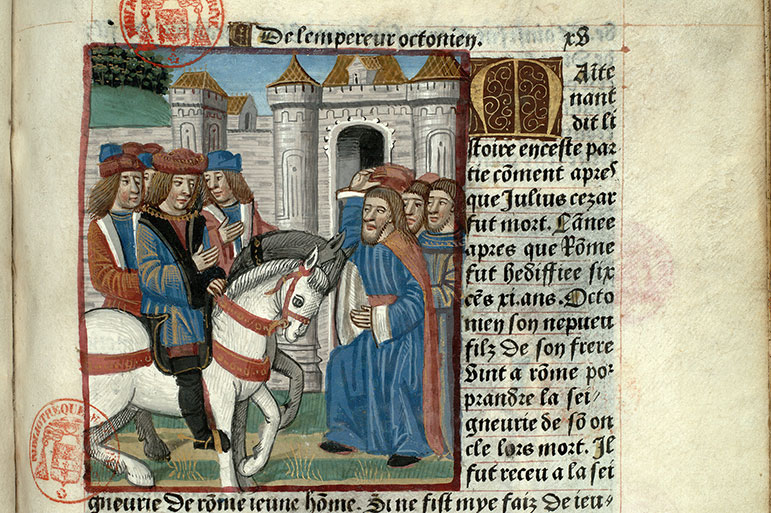 De lempereur octonien. xv
MAĩte
nant
dit li
stoire en ceste par
tie cõment apres
que Julius cezar
fut mort. Lãnee
apres que Rõme
fut hediffiee six
cẽs xi. ans. Octo
nien son nepueu
filz de son frere
Vint a rõme por
prandre la sei-
gneurie de sõ on
cle lors mort. Il
fut receu a la sei
gneurie de rõme ieune hõme. Si ne fist mye faiz de ieu-